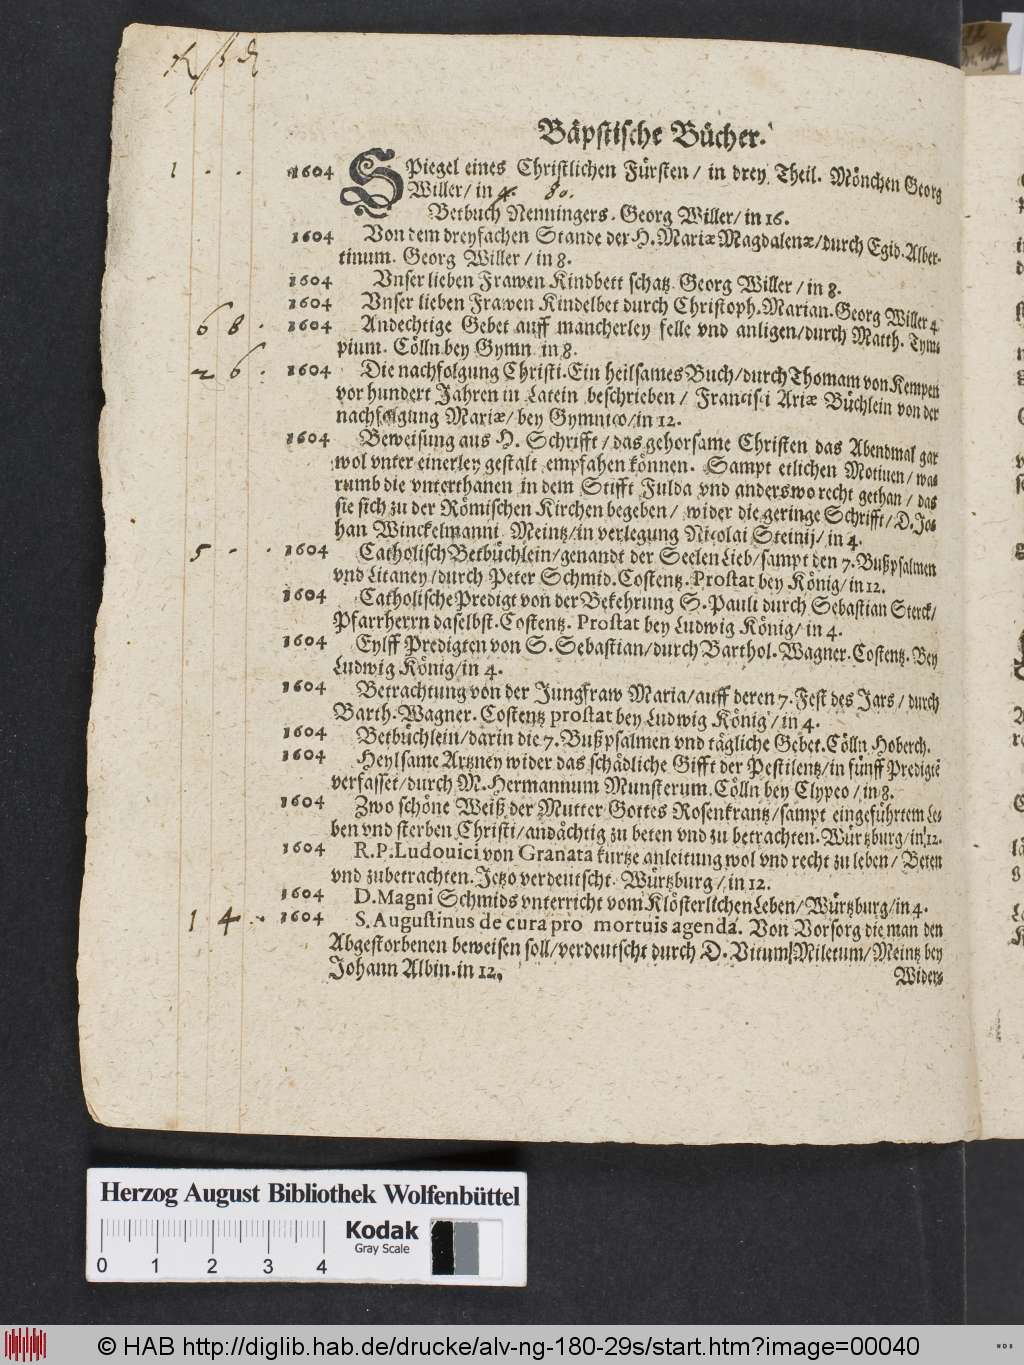 Bäpstische Bücher.
1 . . 1604 SPiegel eines Christlichen Fürsten / in drey Theil. Mönchen Georg
Willer / in 4. 80.
Betbuch Nenningers. Georg Willer / in 16.
1604 Von dem dreyfachen Stande der H. Mariæ Magdalenæ / durch Egid. Alber-
tinum. Georg Willer / in 8.
1604 Vnser lieben Frawen Kindbett schatz. Georg Willer / in 8.
1604 Vnser lieben Frawen Kindelbet durch Christoph. Marian. Georg Willer 4.
6 8 . 1604 Andechtige Gebet auff mancherley felle vnd anligen / durch Matth. Tym-
pium. Cölln bey Gymn in 8.
2 6 . 1604 Die nachfolgung Christi. Ein heilsames Buch / durch Thomam von Kempen
vor hundert Jahren in Latein beschrieben / Francisci Ariæ Büchlein von der
nachfolgung Mariæ / bey Gymnico / in 12.
1604 Beweisung aus H. Schrifft / das gehorsame Christen das Abendmal gar
wol vnter einerley gestalt empfahen können. Sampt etlichen Motiuen / wa-
rumb die vnterthanen in dem Stifft Fulda vnd anderswo recht gethan / das
sie sich zu der Römischen Kirchen begeben / wider die geringe Schrifft / D. Jo-
han Winckelmanni Meintz / in verlegung Nicolai Steinij / in 4.
5 . . 1604 Catholisch Betbüchlein / genandt der Seelen Lieb / sampt den 7. Bußpsalmen
vnd Litaney / durch Peter Schmid. Costentz. Prostat bey König / in 12.
1604 Catholische Predigt von der Bekehrung S. Pauli durch Sebastian Sterck /
Pfarrherrn daselbst. Costentz. Prostat bey Ludwig König / in 4.
1604 Eylff Predigten von S. Sebastian / durch Barthol. Wagner. Costentz. Bey
Ludwig König / in 4.
1604 Betrachtung von der Jungfraw Maria / auff deren 7. Fest des Jars / durch
Barth. Wagner. Costentz prostat bey Ludwig König / in 4.
1604 Betbüchlein / darin die 7. Bußpsalmen vnd tägliche Gebet. Cölln Hoberch.
1604 Heylsame Artzney wider das schädliche Gifft der Pestilentz / in fünff Predigtē
verfasset / durch M. Hermannum Munsterum. Cölln bey Clypeo / in 8.
1604 Zwo schöne Weiß der Mutter Gottes Rosenkrantz / sampt eingeführtem Le-
ben vnd sterben Christi / andächtig zu beten vnd zu betrachten. Würtzburg / in 12.
1604 R. P. Ludouici von Granata kurtze anleitung wol vnd recht zu leben / Beten
vnd zubetrachten. Jetzo verdeutscht. Würtzburg / in 12.
1604 D. Magni Schmids vnterricht vom Klösterlichen Leben / Würtzburg / in 4.
1 4 . . 1604 S. Augustinus de cura pro mortuis agenda. Von Vorsorg die man den
Abgestorbenen beweisen soll / verdeutscht durch D. Vitum Miletum / Meintz bey
Johann Albin. in 12.
Wider-
Herzog August Bibliothek Wolfenbüttel
Kodak
Gray Scale
0 1 2 3 4
© HAB http://diglib.hab.de/drucke/alv-ng-180-29s/start.htm?image=00040